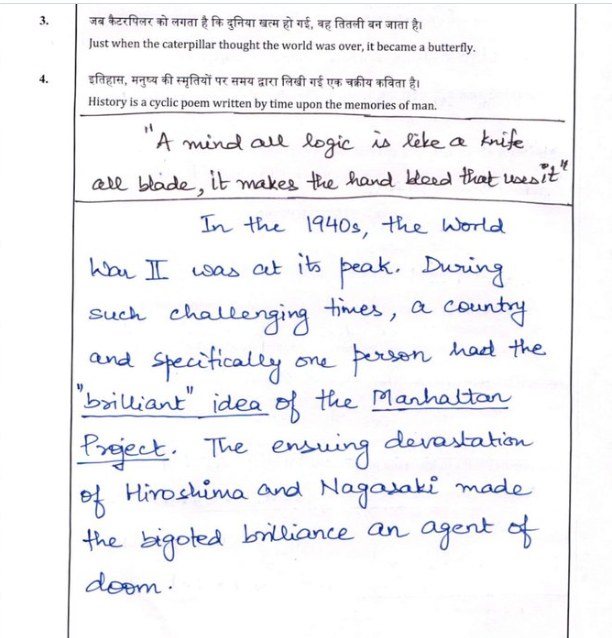 3. जब कैटरपिलर को लगता है कि दुनिया खत्म हो गई, वह तितली बन जाता है।
Just when the caterpillar thought the world was over, it became a butterfly.
4. इतिहास, मनुष्य की स्मृतियों पर समय द्वारा लिखी गई एक चक्रीय कविता है।
History is a cyclic poem written by time upon the memories of man.
"A mind all logic is like a knife
all blade, it makes the hand bleed that uses it"
In the 1940s, the World
War II was at its peak. During
such challenging times, a country
and specifically one person had the
"brilliant" idea of the Manhattan
Project. The ensuing devastation
of Hiroshima and Nagasaki made
the bigoted brilliance an agent of
doom.